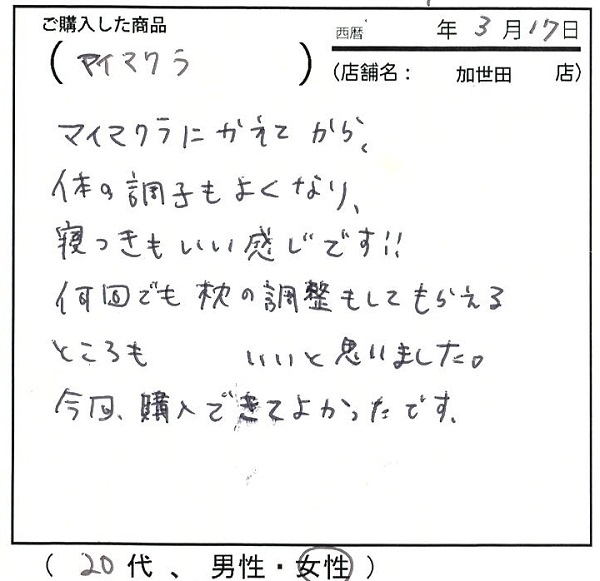 ご購入した商品
西暦 年 3月17日
(マイマクラ)
(店舗名： 加世田 店)
マイマクラにかえてから、
体の調子もよくなり、
寝つきもいい感じです!!
何回でも枕の調整もしてもらえる
ところも いいと思いました。
今回、購入できてよかったです。
(20代、男性・女性)